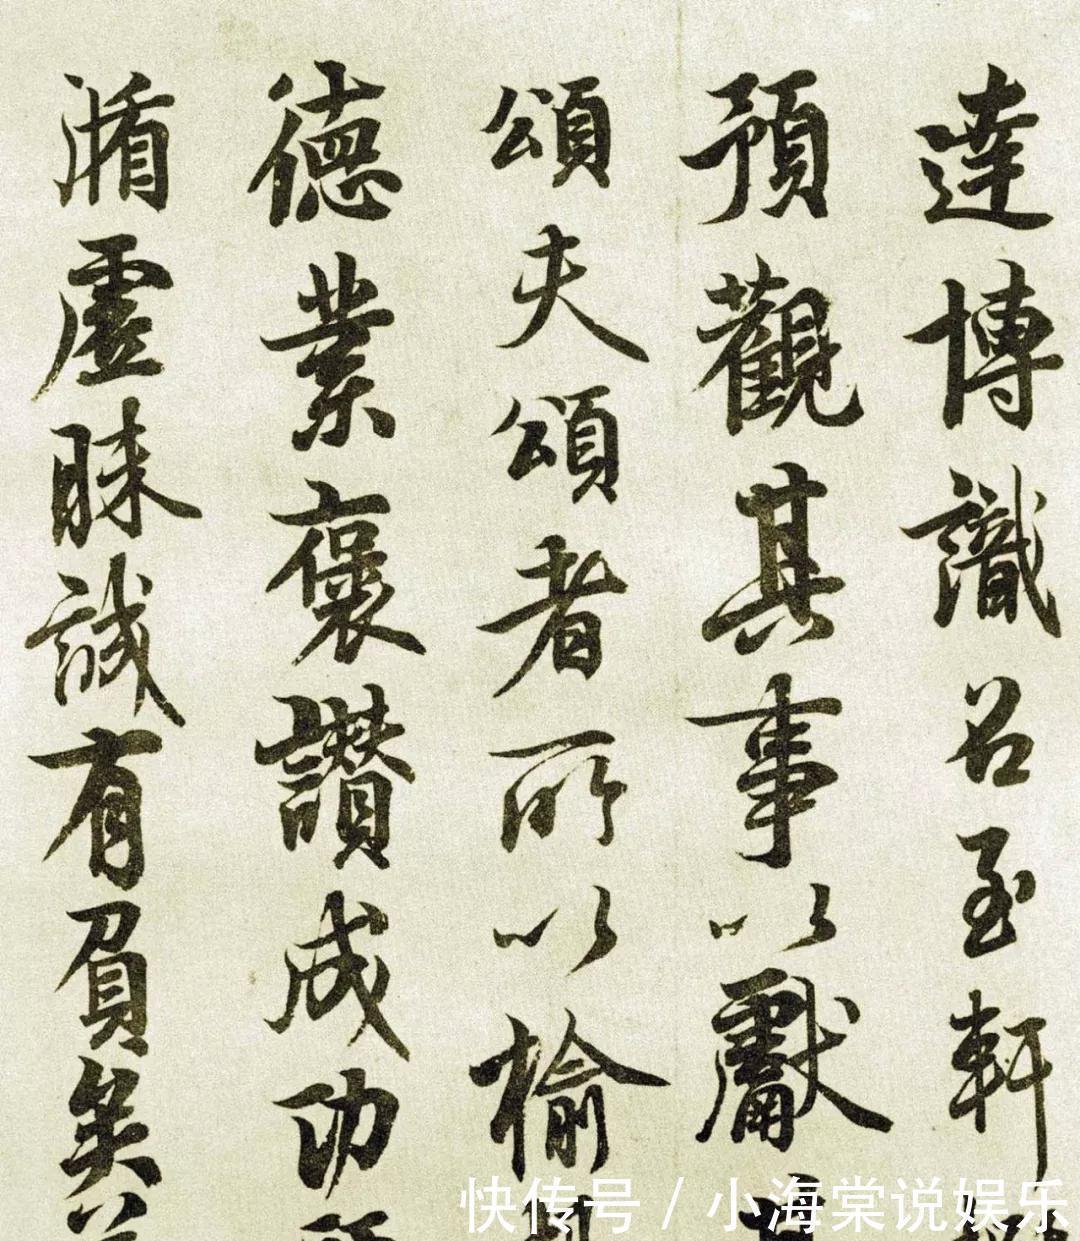 達博識召至軒
預觀其事以獻
頌夫頌者所以揄
德業褒讚成功
循虛昧誠有負矣
快传号/小海棠说娱乐